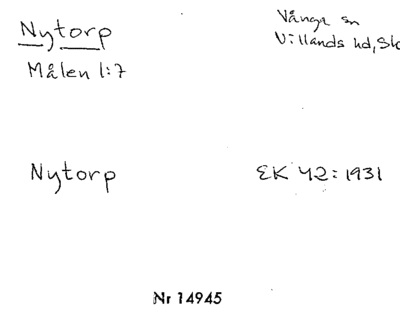 Nytorp
Vånga sn
Målen 1:7
Villands hd, Sk
Nytorp
EK 42:1931
Nr 14945